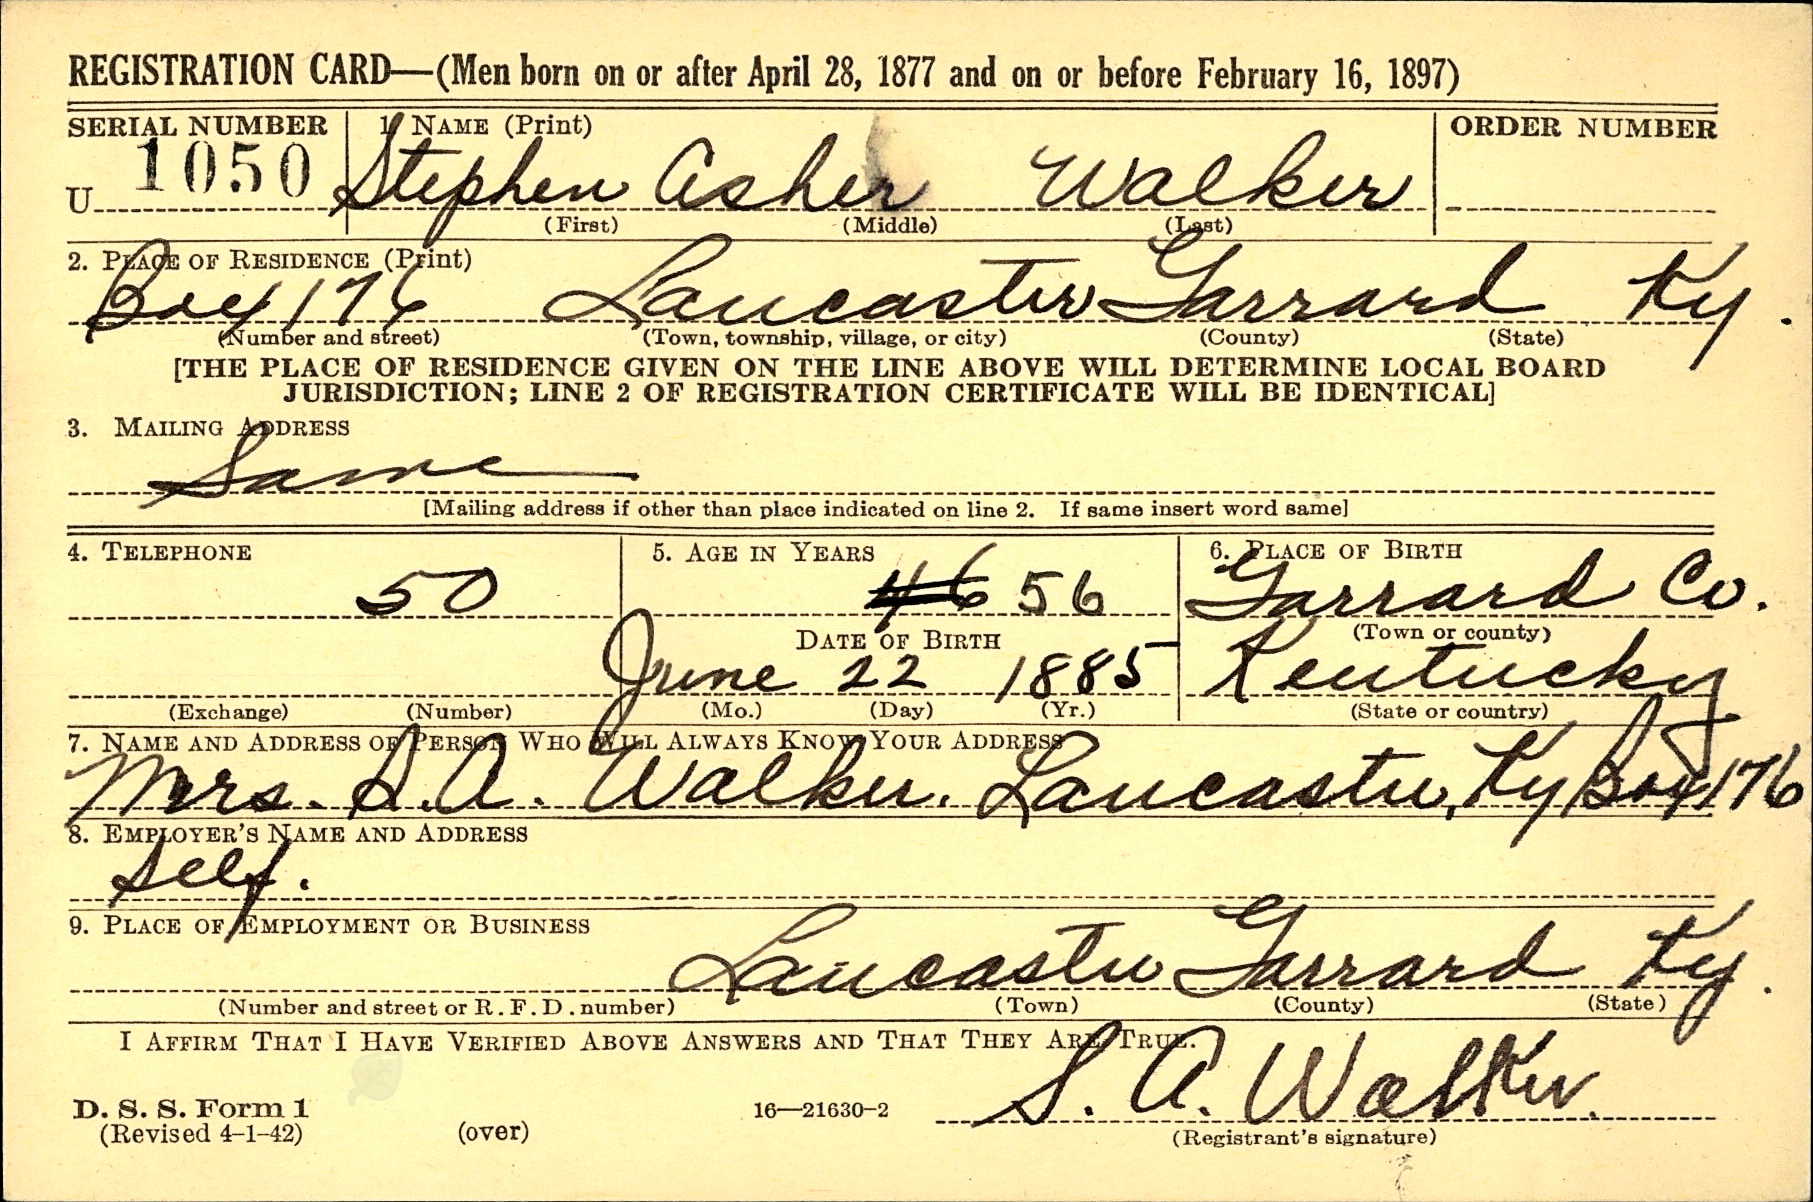 REGISTRATION CARD—(Men born on or after April 28, 1877 and on or before February 16, 1897)
SERIAL NUMBER 1. NAME (Print) ORDER NUMBER
U 1050 Stephen Asher Walker
(First) (Middle) (Last)
2. PLACE OF RESIDENCE (Print)
Box 176 Lancaster Garrard Ky.
(Number and street) (Town, township, village, or city) (County) (State)
[THE PLACE OF RESIDENCE GIVEN ON THE LINE ABOVE WILL DETERMINE LOCAL BOARD
JURISDICTION; LINE 2 OF REGISTRATION CERTIFICATE WILL BE IDENTICAL]
3. MAILING ADDRESS
Same
[Mailing address if other than place indicated on line 2. If same insert word same]
4. TELEPHONE 5. AGE IN YEARS 6. PLACE OF BIRTH
50 46 56 Garrard Co.
DATE OF BIRTH (Town or county)
June 22 1885 Kentucky
(Exchange) (Number) (Mo.) (Day) (Yr.) (State or country)
7. NAME AND ADDRESS OF PERSON WHO WILL ALWAYS KNOW YOUR ADDRESS
Mrs. S. A. Walker. Lancaster, Ky Box 176
8. EMPLOYER'S NAME AND ADDRESS
Self.
9. PLACE OF EMPLOYMENT OR BUSINESS
Lancaster Garrard Ky.
(Number and street or R. F. D. number) (Town) (County) (State)
I AFFIRM THAT I HAVE VERIFIED ABOVE ANSWERS AND THAT THEY ARE TRUE.
S. A. Walker.
D. S. S. Form 1
(Revised 4-1-42) (over) 16—21630-2 (Registrant's signature)